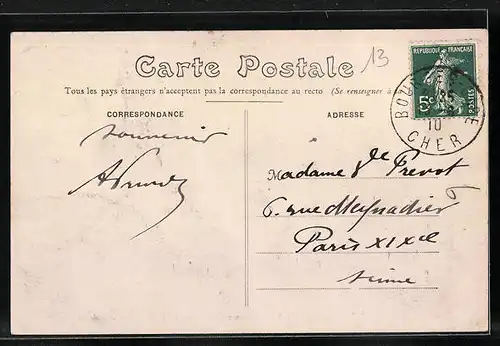 13
Carte Postale
RÉPUBLIQUE FRANÇAISE
5c
POSTES
Tous les pays étrangers n'acceptent pas la correspondance au recto (Se renseigner à
CORRESPONDANCE
ADRESSE
10
CHER
souvenir
Madame de Prevot
6. rue Meynadier 6
Paris XIXe
Seine